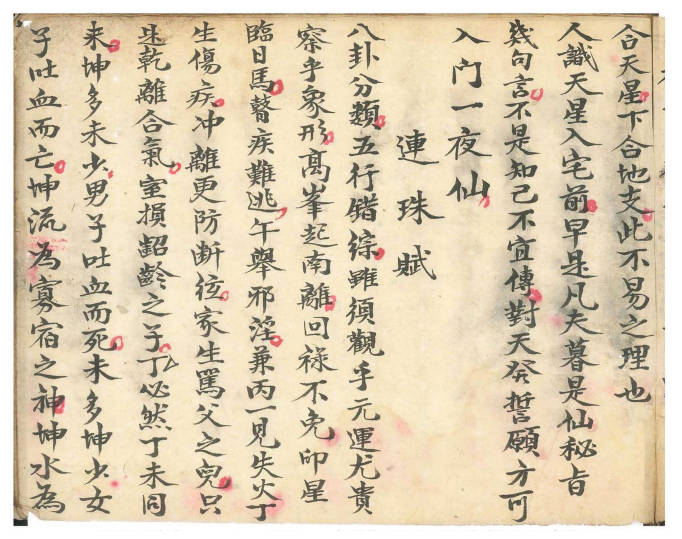 合天星下合地支此不易之理也
人識天星入宅前早是凡夫暮是仙秘旨
幾句言不是知己不宜傳對天發誓願方可
入门一夜仙
連珠賦
八卦分類五行错綜雖須觀乎元運尤貴
察乎象形高峯起南離回禄不免卯星
臨日馬瞽疾難逃午舉邪淫兼丙一見失火丁
生傷疾冲離更防断弦家生罵父之兒只
乾離合氣室損龆齡之子丁必然丁未同
来坤多未少男子吐血而死未多坤少女
子吐血而亡坤流為寡宿之神坤水為